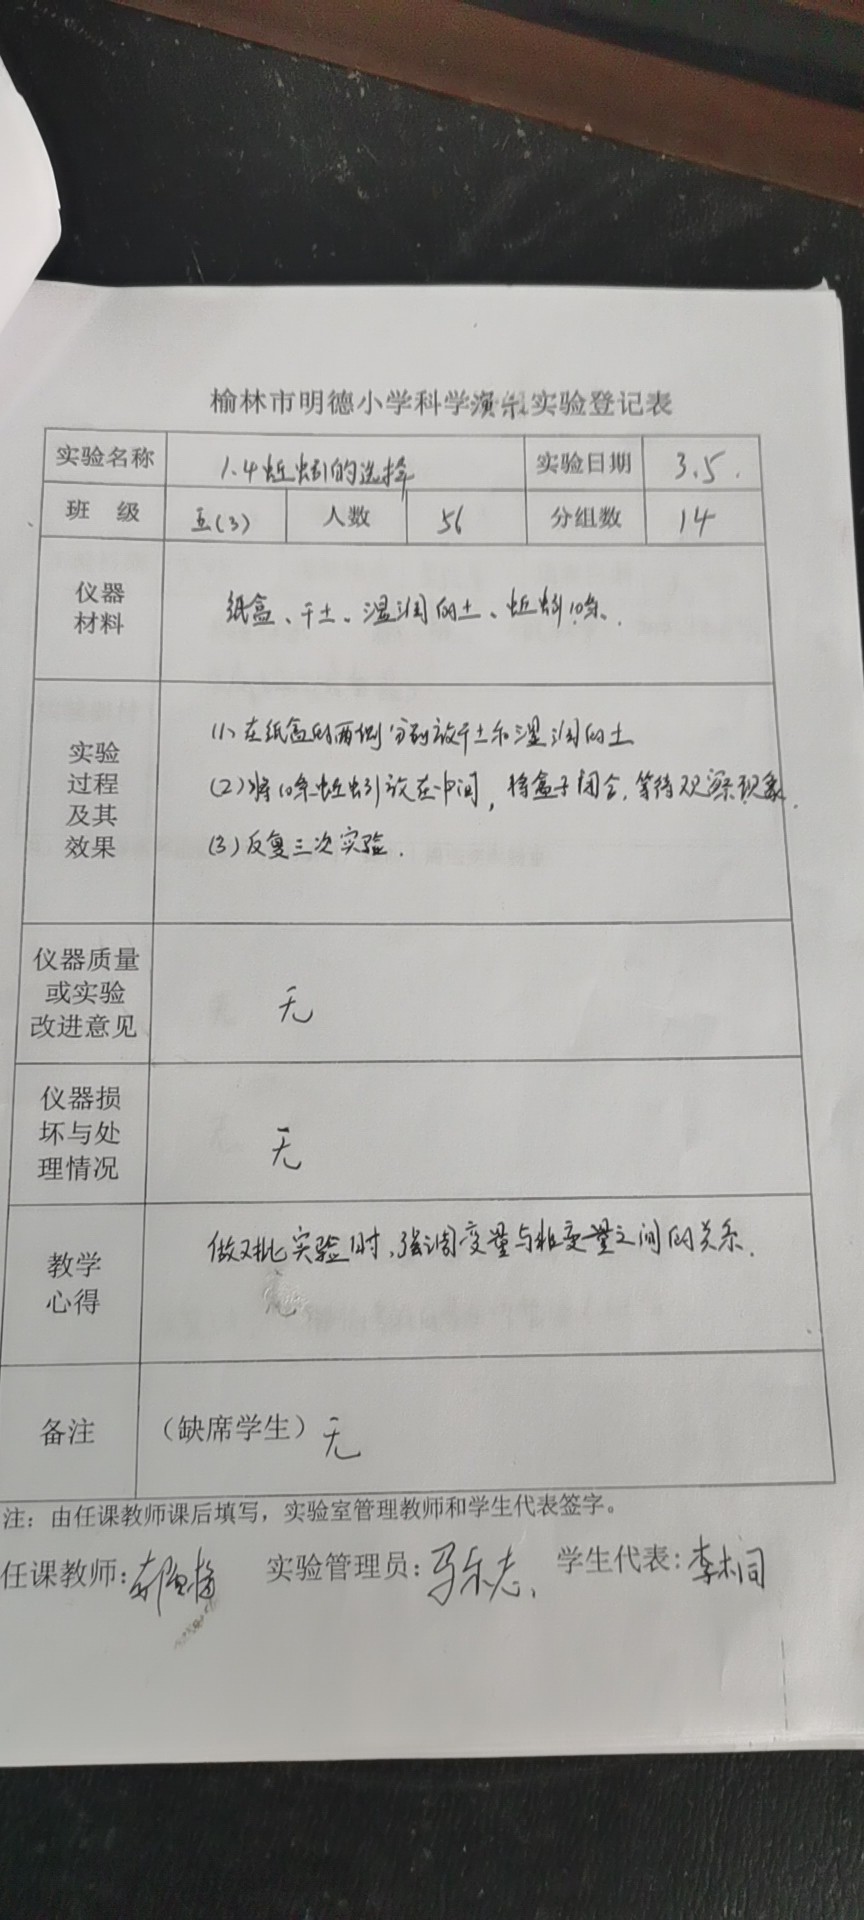 榆林市明德小学科学演示实验登记表
实验名称 1.4蚯蚓的选择 实验日期 3.5.
班 级 五(3) 人数 56 分组数 14
仪器
材料
纸盒、干土、湿润的土、蚯蚓10条.
实验
过程
及其
效果
(1)在纸盒的两侧分别放干土和湿润的土
(2)将10条蚯蚓放在中间,将盒子闭合,等待观察现象.
(3)反复三次实验.
仪器质量
或实验
改进意见
无
仪器损
坏与处
理情况
无
教学
心得
做对比实验时,强调变量与非变量之间的关系.
备注 (缺席学生) 无
注：由任课教师课后填写，实验室管理教师和学生代表签字。
任课教师: 实验管理员:马乐志. 学生代表:李桐